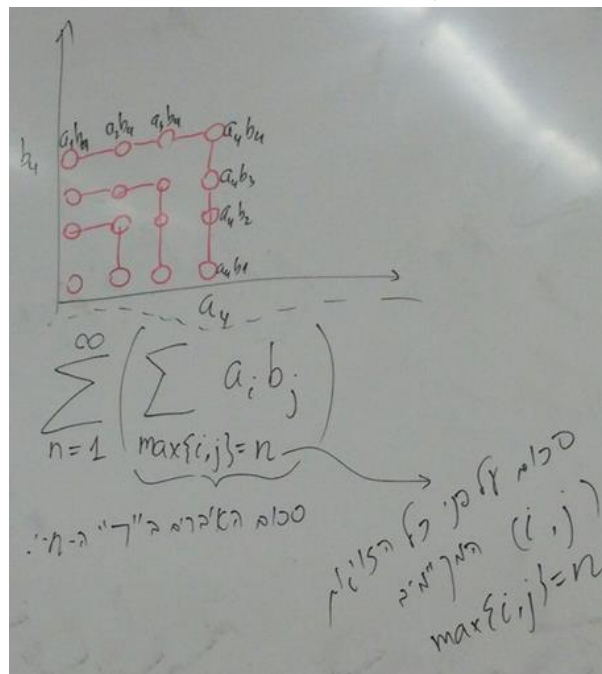 a₁b₄ a₂b₄ a₃b₄ a₄b₄
b₄
a₄b₃
a₄b₂
a₄b₁
a₄
∞
∑ ( ∑ aᵢ bⱼ )
n=1 max{i,j}=n
סכום האיברים ב"ר" ה-n-י.
סכום על פני כל הזוגות
(i,j) המקיימים
max{i,j}=n